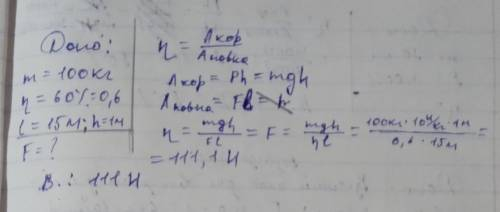 Дано:
m = 100кг
η = 60% = 0,6
l = 15м; h = 1м
F = ?
В.: 111 Н
η = Aкор / Aповна
Aкор = Ph = mgh
Aповна = Fl = h
η = mgh / Fl = F = mgh / ηl = 100кг · 10Н/кг · 1м / 0,6 · 15м =
= 111,1 Н